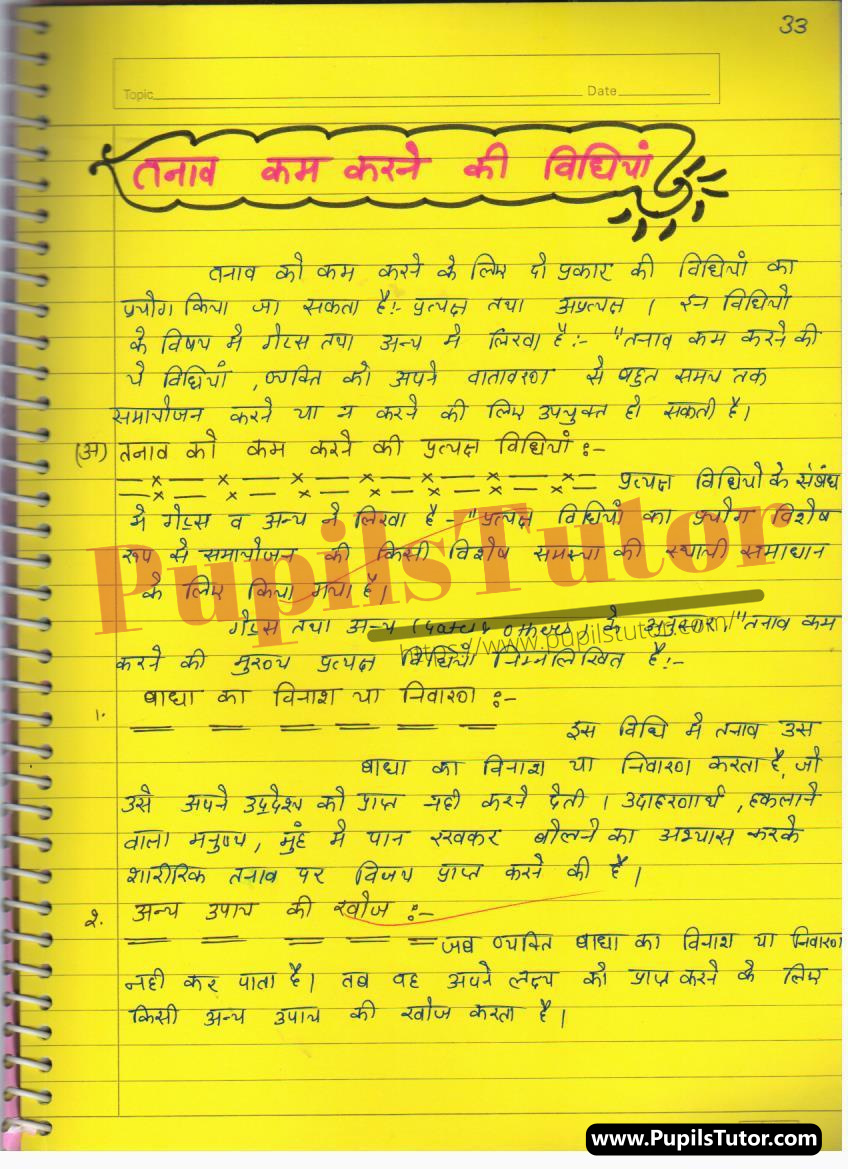 33
Topic
Date
तनाव कम करने की विधियां
तनाव को कम करने के लिए दो प्रकार की विधियों का
प्रयोग किया जा सकता है:- प्रत्यक्ष तथा अप्रत्यक्ष । इन विधियो
के विषय मे गेटस तथा अन्य मे लिखा है:- "तनाव कम करने की
ये विधियां ,व्यक्ति को अपने वातावरण से बहुत समय तक
समायोजन करने या न करने की लिए उपयुक्त हो सकती है।
(अ) तनाव को कम करने की प्रत्यक्ष विधियां :-
प्रत्यक्ष विधियो के संबंध
मे गेट्स व अन्य ने लिखा है - "प्रत्यक्ष विधियों का प्रयोग विशेष
रूप से समायोजन की किसी विशेष समस्या की स्थायी समाधान
के लिए किया गया है।
गेट्स तथा अन्य के अनुसार, "तनाव कम
करने की मुख्य प्रत्यक्ष विधियाँ निम्नलिखित है:-
1. बाधा का विनाश या निवारण :-
इस विधि मे तनाव उस
बाधा का विनाश या निवारण करता है, जो
उसे अपने उद्देश्य को प्राप्त नही करने देती । उदाहरणार्थ , हकलाने
वाला मनुष्य, मुंह मे पान रखकर बोलने का अभ्यास करके
शारीरिक तनाव पर विजय प्राप्त करने की है।
2. अन्य उपाय की खोज :-
जब व्यक्ति बाधा का विनाश या निवारण
नही कर पाता है। तब वह अपने लक्ष्य को प्राप्त करने के लिए
किसी अन्य उपाय की खोज करता है।
PupilsTutor
https://www.pupilstutor.com/
www.PupilsTutor.com